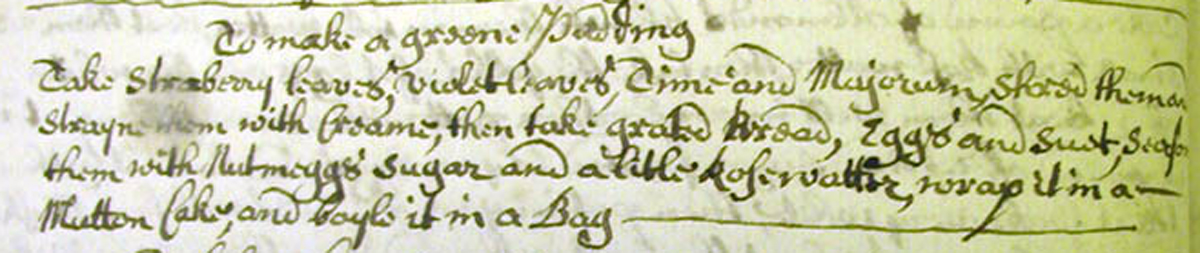 To make a greene Pudding
Take Straberry leaves, violet leaves, Time and Majorum, Shred them and
Strayne them with Creame, then take grated Bread, Eggs and Suet, Seasn
them with Nutmeggs Sugar and a litle Rosewatter, wrap it in a
Mutton Cake, and boyle it in a Bag